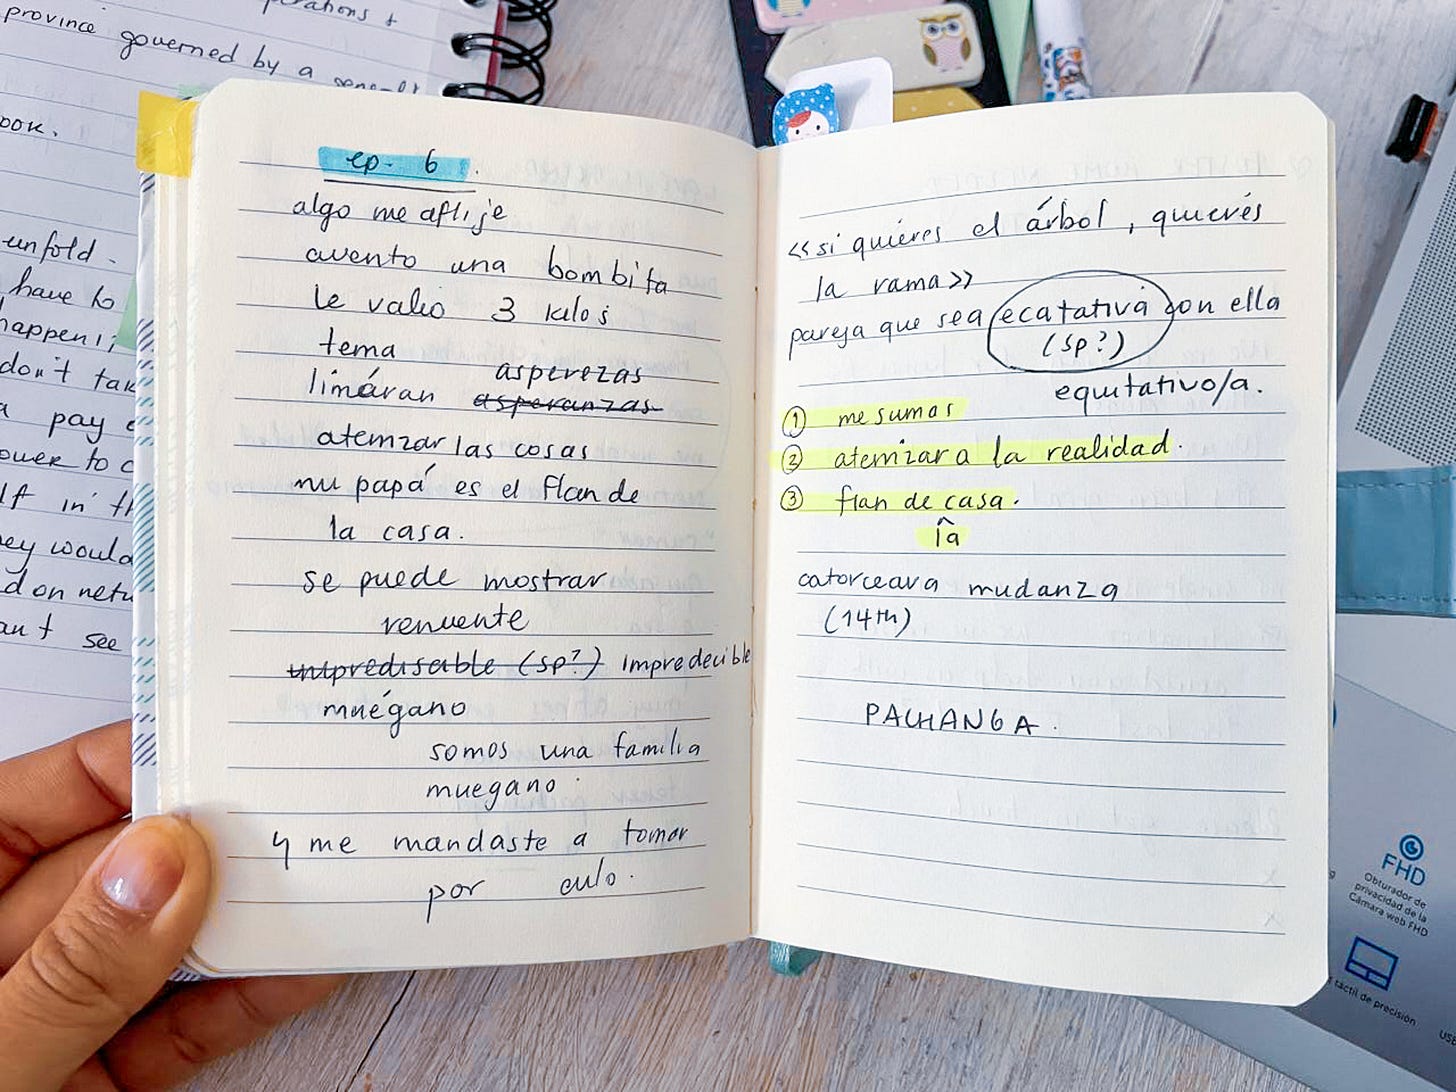 province governed by a
ook.
unfold.
have to
happen;
don't tak
pay
ower to c
lf in th
ey would
d on netw
an't see
ep. 6.
algo me aflije
avento una bombita
le valió 3 kilos
tema
limáran asperezas
asperanzas
atemizar las cosas
mi papá es el flan de
la casa.
se puede mostrar
renuente
impredisable (sp?) impredecible
muégano
somos una familia
muegano.
y me mandaste a tomar
por culo.
<<si quiéres el árbol, quierés
la rama>>
pareja que sea ecatativa con ella
(sp?)
equitativo/a.
① me sumas
② atemizar a la realidad.
③ flan de casa.
^
la
catorceava mudanza
(14th)
PACHANGA.
FHD
Obturador de
privacidad de la
Cámara web FHD
táctil de precisión